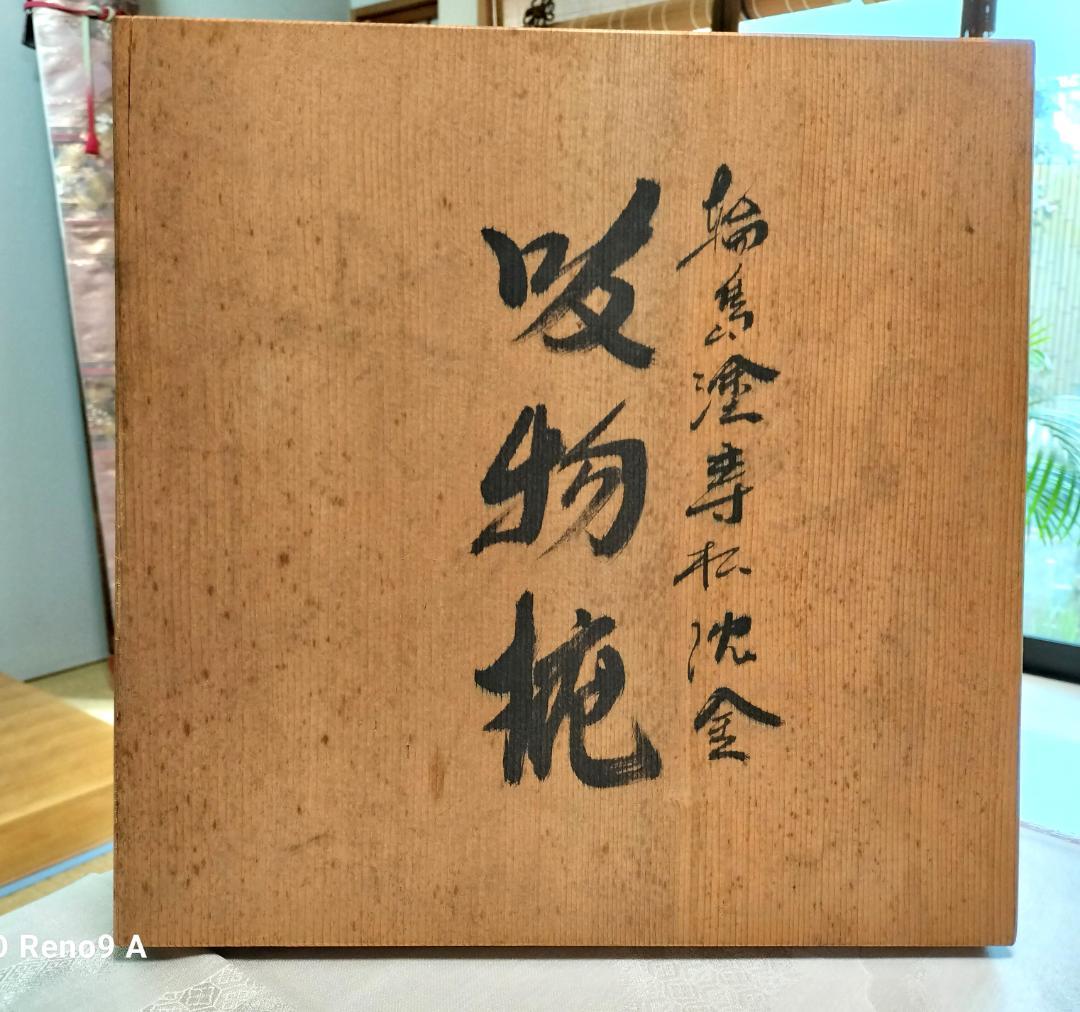 輪島塗寿松沈金
吸物椀
0 Reno9 A